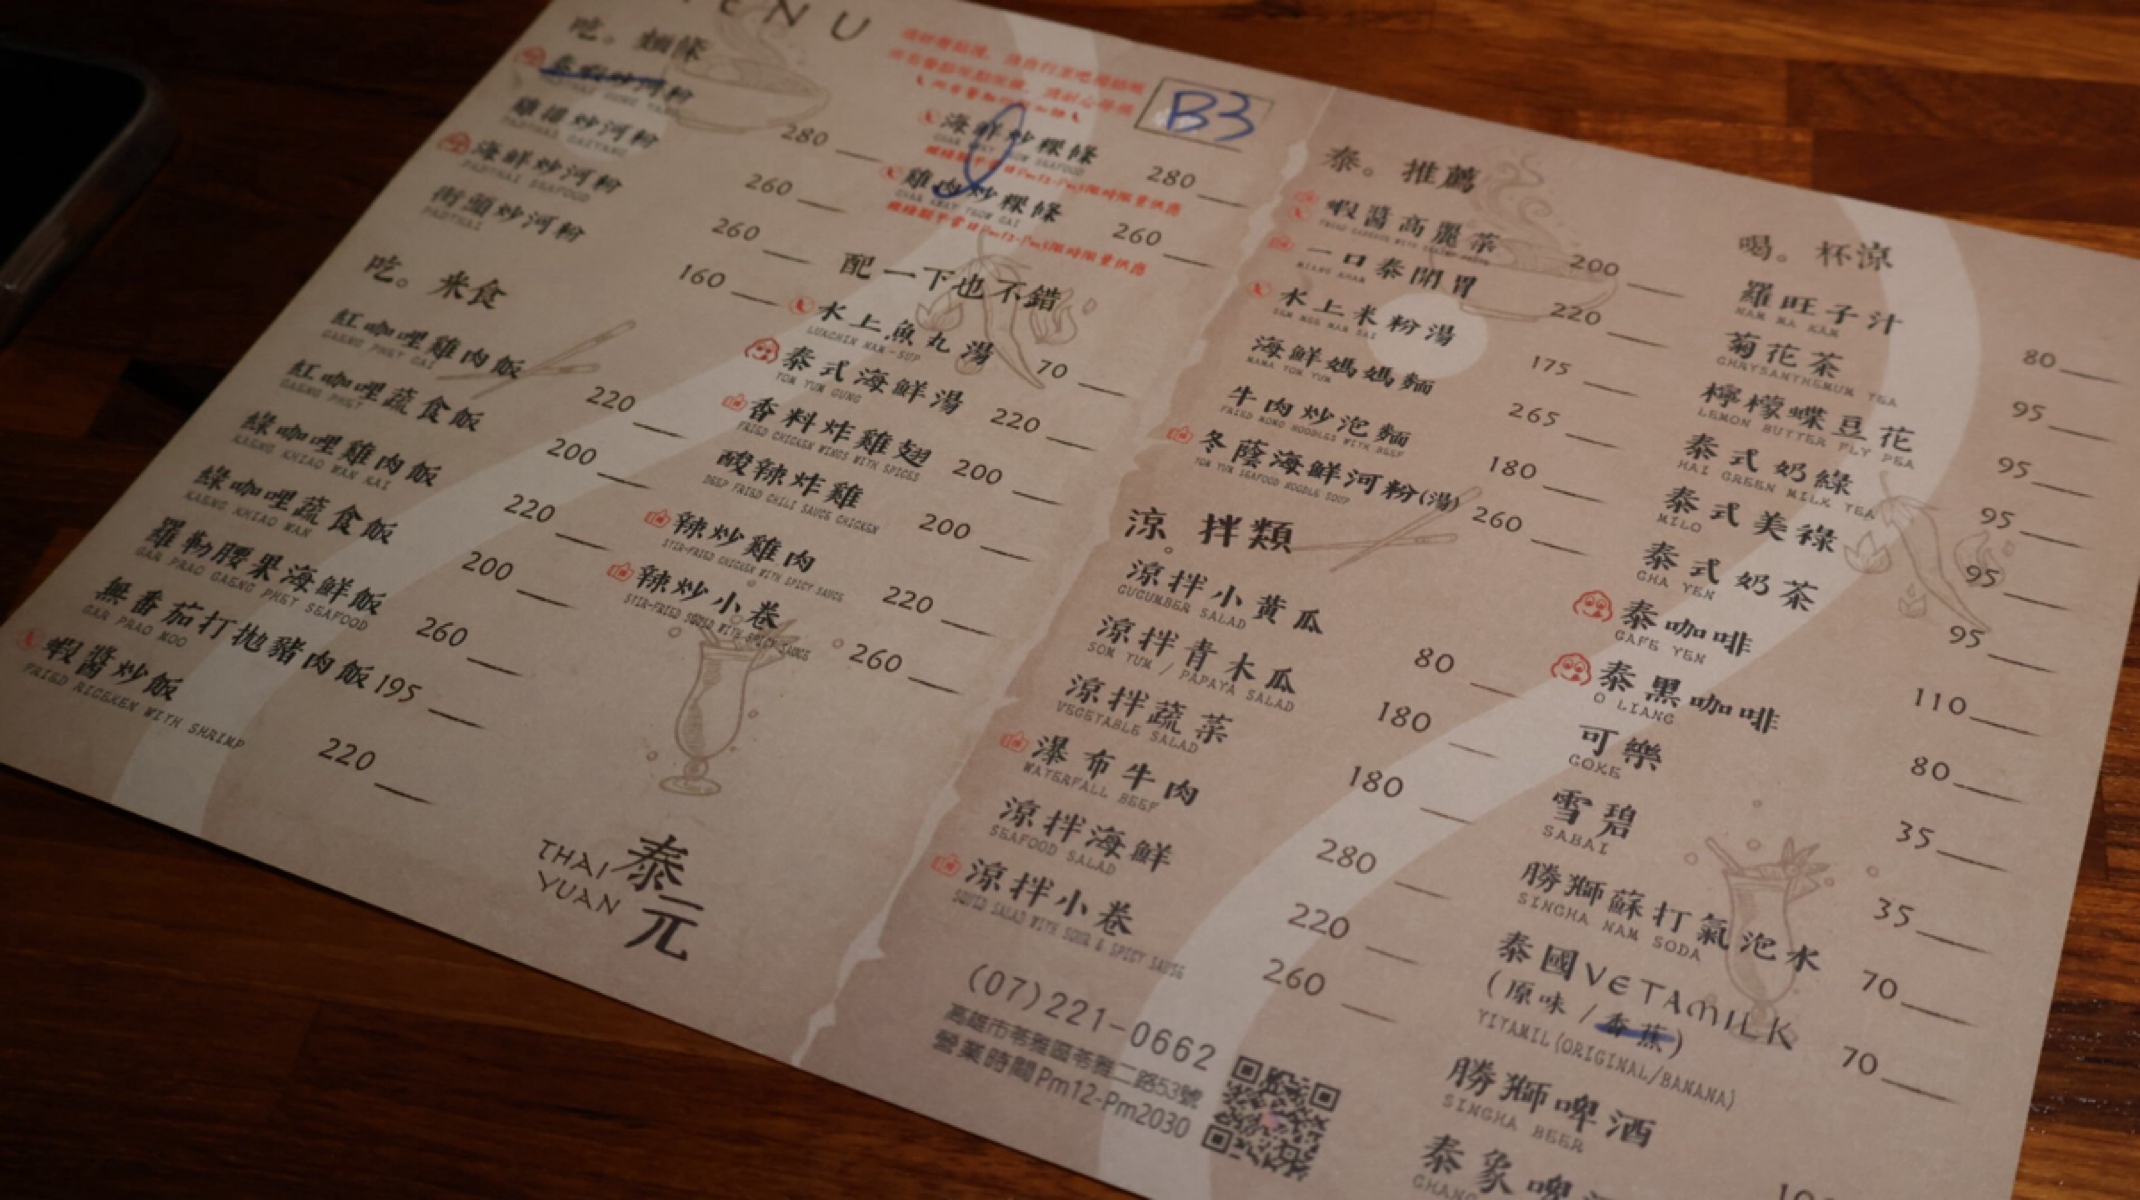 MENU
吃。麵條
泰蝦炒河粉 280
雞排炒河粉 260
PADTHAI GAIYANG
海鮮炒河粉 260
PADTHAI SEAFOOD
街頭炒河粉 160
PADTHAI
吃。米食
紅咖哩雞肉飯 220
GAENG PHET GAI
紅咖哩蔬食飯 200
GAENG PHET
綠咖哩雞肉飯 220
KAENG KHIAO WAN KAI
綠咖哩蔬食飯 200
KAENG KHIAO WAN
羅勒腰果海鮮飯 260
GAR PRAO GAENG PHET SEAFOOD
無番茄打拋豬肉飯 195
GAR PRAO MOO
蝦醬炒飯 220
FRIED RICEKEN WITH SHRIMP
B3
海鮮炒粿條 280
雞肉炒粿條 260
配一下也不錯
水上魚丸湯 70
LUKCHIN NAM-SUP
泰式海鮮湯 220
TOM YUM GUNG
香料炸雞翅 200
FRIED CHICKEN WINGS WITH SPICES
酸辣炸雞 200
DEEP FRIED CHILI SAUCE CHICKEN
辣炒雞肉 220
STIR-FRIED CHICKEN WITH SPICY SAUCE
辣炒小卷 260
STIR-FRIED SQUID WITH SPICY SAUCE
THAI YUAN
泰元
泰。推薦
蝦醬高麗菜 200
一口泰開胃 220
MIANG KHAM
水上米粉湯 175
海鮮媽媽麵 265
MAMA TOM YUM
牛肉炒泡麵 180
FRIED MOMO NOODLES WITH BEEF
冬蔭海鮮河粉(湯) 260
TOM YUM SEAFOOD NOODLE SOUP
涼。拌類
涼拌小黃瓜 80
CUCUMBER SALAD
涼拌青木瓜 180
SOM TUM / PAPAYA SALAD
涼拌蔬菜 180
VEGETABLE SALAD
瀑布牛肉 280
WATERFALL BEEF
涼拌海鮮 220
SEAFOOD SALAD
涼拌小卷 260
SQUID SALAD WITH SOUR & SPICY SAUSE
(07)221-0662
高雄市苓雅區苓雅二路53號
營業時間Pm12-Pm2030
喝。杯涼
羅旺子汁 80
NAM MA KAM
菊花茶 95
CHRYSANTHEMUM TEA
檸檬蝶豆花 95
LEMON BUTTER FLY PEA
泰式奶綠 95
HAI GREEN MILK TEA
泰式美祿 95
MILO
泰式奶茶 95
CHA YEN
泰咖啡 110
CAFE YEN
泰黑咖啡 80
O LIANG
可樂 35
COKE
雪碧 35
SABAI
勝獅蘇打氣泡水 70
SINGHA NAM SODA
泰國VETAMILK 70
(原味/香蕉)
VITAMIL(ORIGINAL/BANANA)
勝獅啤酒
SINGHA BEER
泰象啤
CHANG